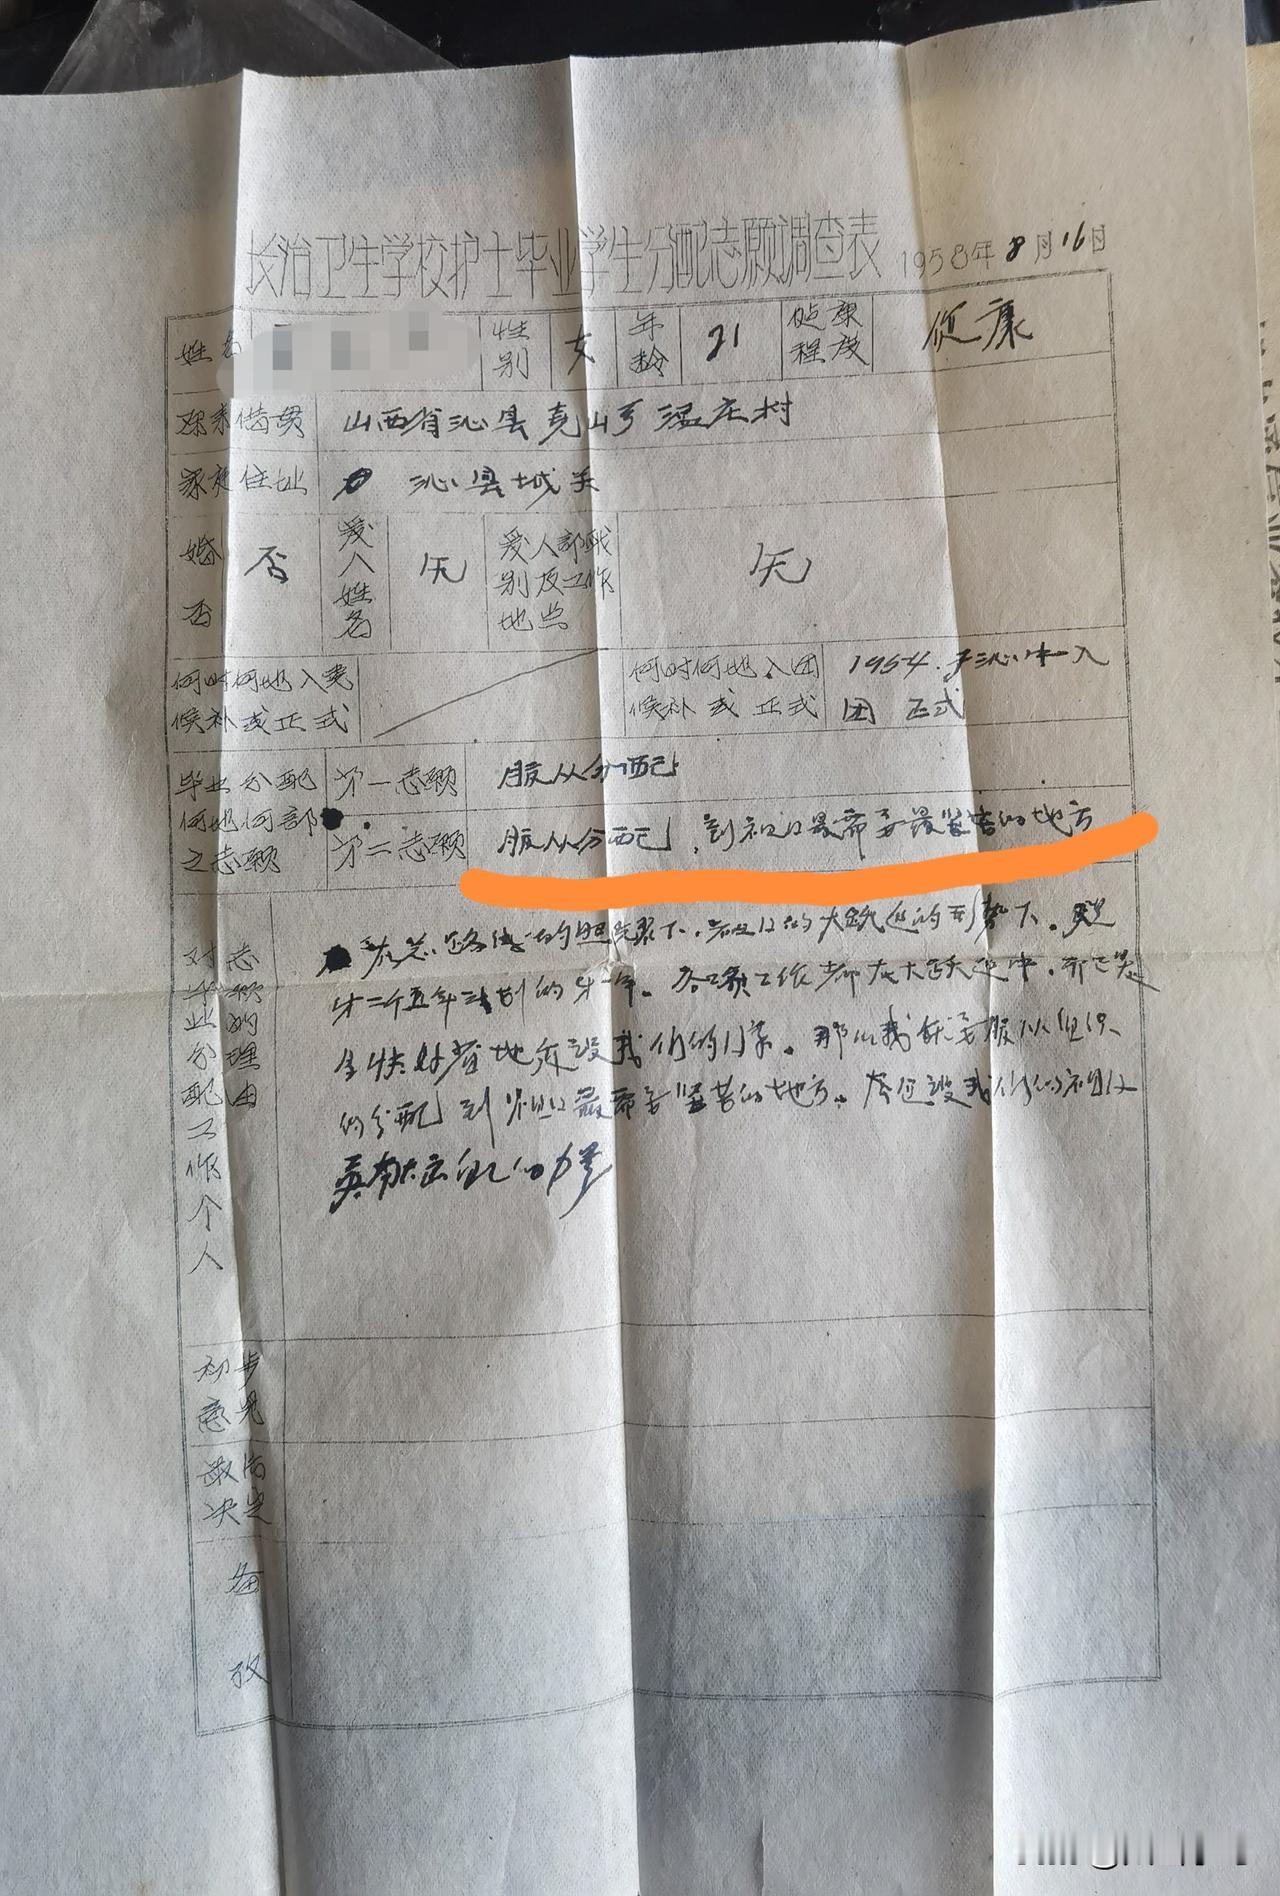 长治卫生学校护士毕业学生分配志愿调查表 1958年8月16日
姓名 性别 女 年龄 21 健康程度 健康
原来借贯 山西省沁县尧山乡温庄村
家庭住址 沁县城关
婚否 否 爱人姓名 无 爱人部职别及工作地点 无
何时何地入党候补或正式 何时何地入团候补或正式 1954.于沁中入团 正式
毕业分配何地何部之志愿 第一志愿 服从分配
第二志愿 服从分配,到祖国最需要最坚苦的地方
对毕业分配工作个人志愿的理由
在总路线的照耀下,祖国的大跃进的形势下,是
第二个五年计划的第一年。各项工作都在大跃进中,
好省地建设我们的国家。那么我就要服从组织
的分配到祖国最需要坚苦的地方。建设我们的祖国
贡献出自己的力量
初步意见
最后决定
备考